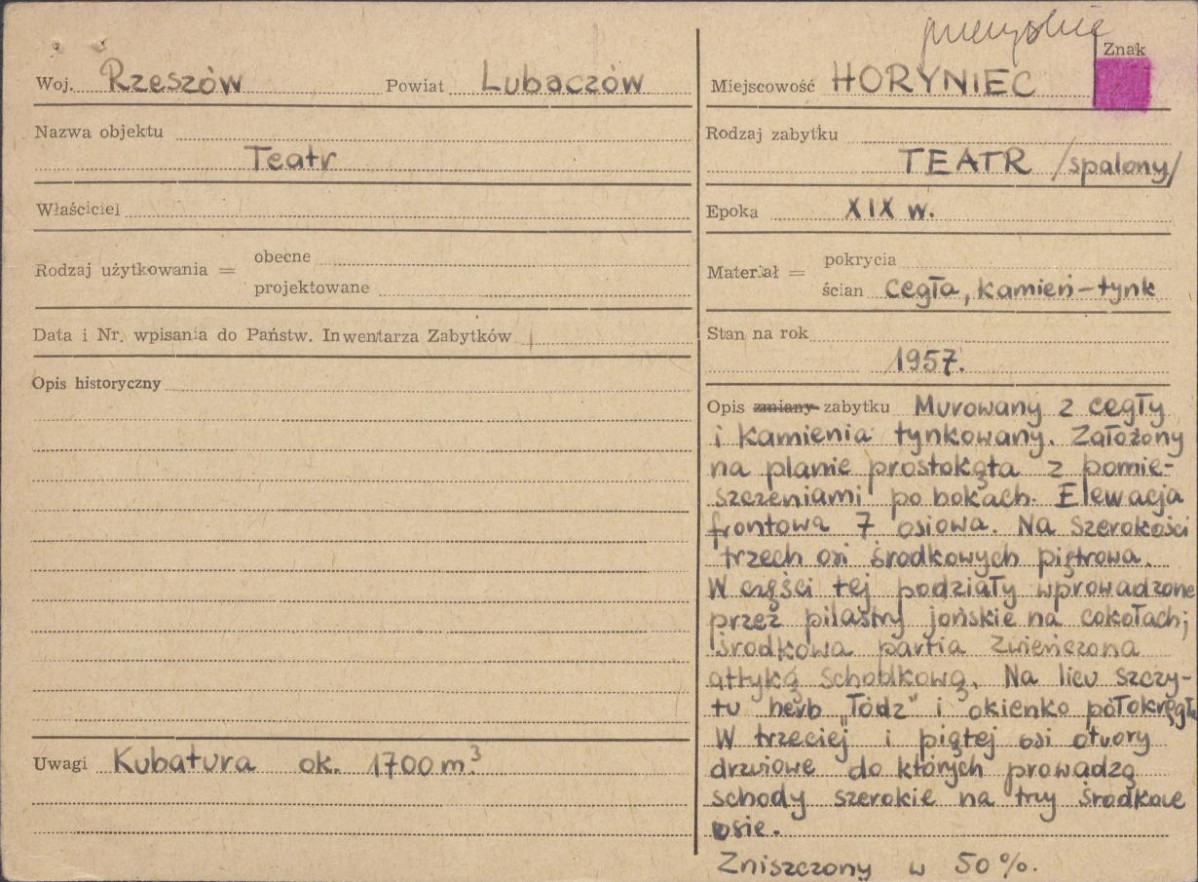 przemyskie
Woj. Rzeszów Powiat Lubaczów
Nazwa objektu
Teatr
Właściciel
Rodzaj użytkowania = obecne
projektowane
Data i Nr. wpisania do Państw. Inwentarza Zabytków
Opis historyczny
Uwagi Kubatura ok. 1700 m³
Znak
Miejscowość HORYNIEC
Rodzaj zabytku
TEATR /spalony/
Epoka XIX w.
Materiał = pokrycia
ścian cegła, kamień-tynk
Stan na rok
1957.
Opis zmiany zabytku Murowany z cegły
i kamienia tynkowany. Założony
na planie prostokąta z pomie-
szczeniami po bokach. Elewacja
frontowa 7 osiowa. Na szerokości
trzech osi środkowych piętrowa.
W części tej podziały wprowadzone
przez pilastry jońskie na cokołach;
środkowa partia zwieńczona
attyką schodkową. Na licu szczy-
tu herb "Łódź" i okienko półokrągłe
W trzeciej i piątej osi otwory
drzwiowe do których prowadzą
schody szerokie na trzy środkowe
osie.
Zniszczony w 50%.